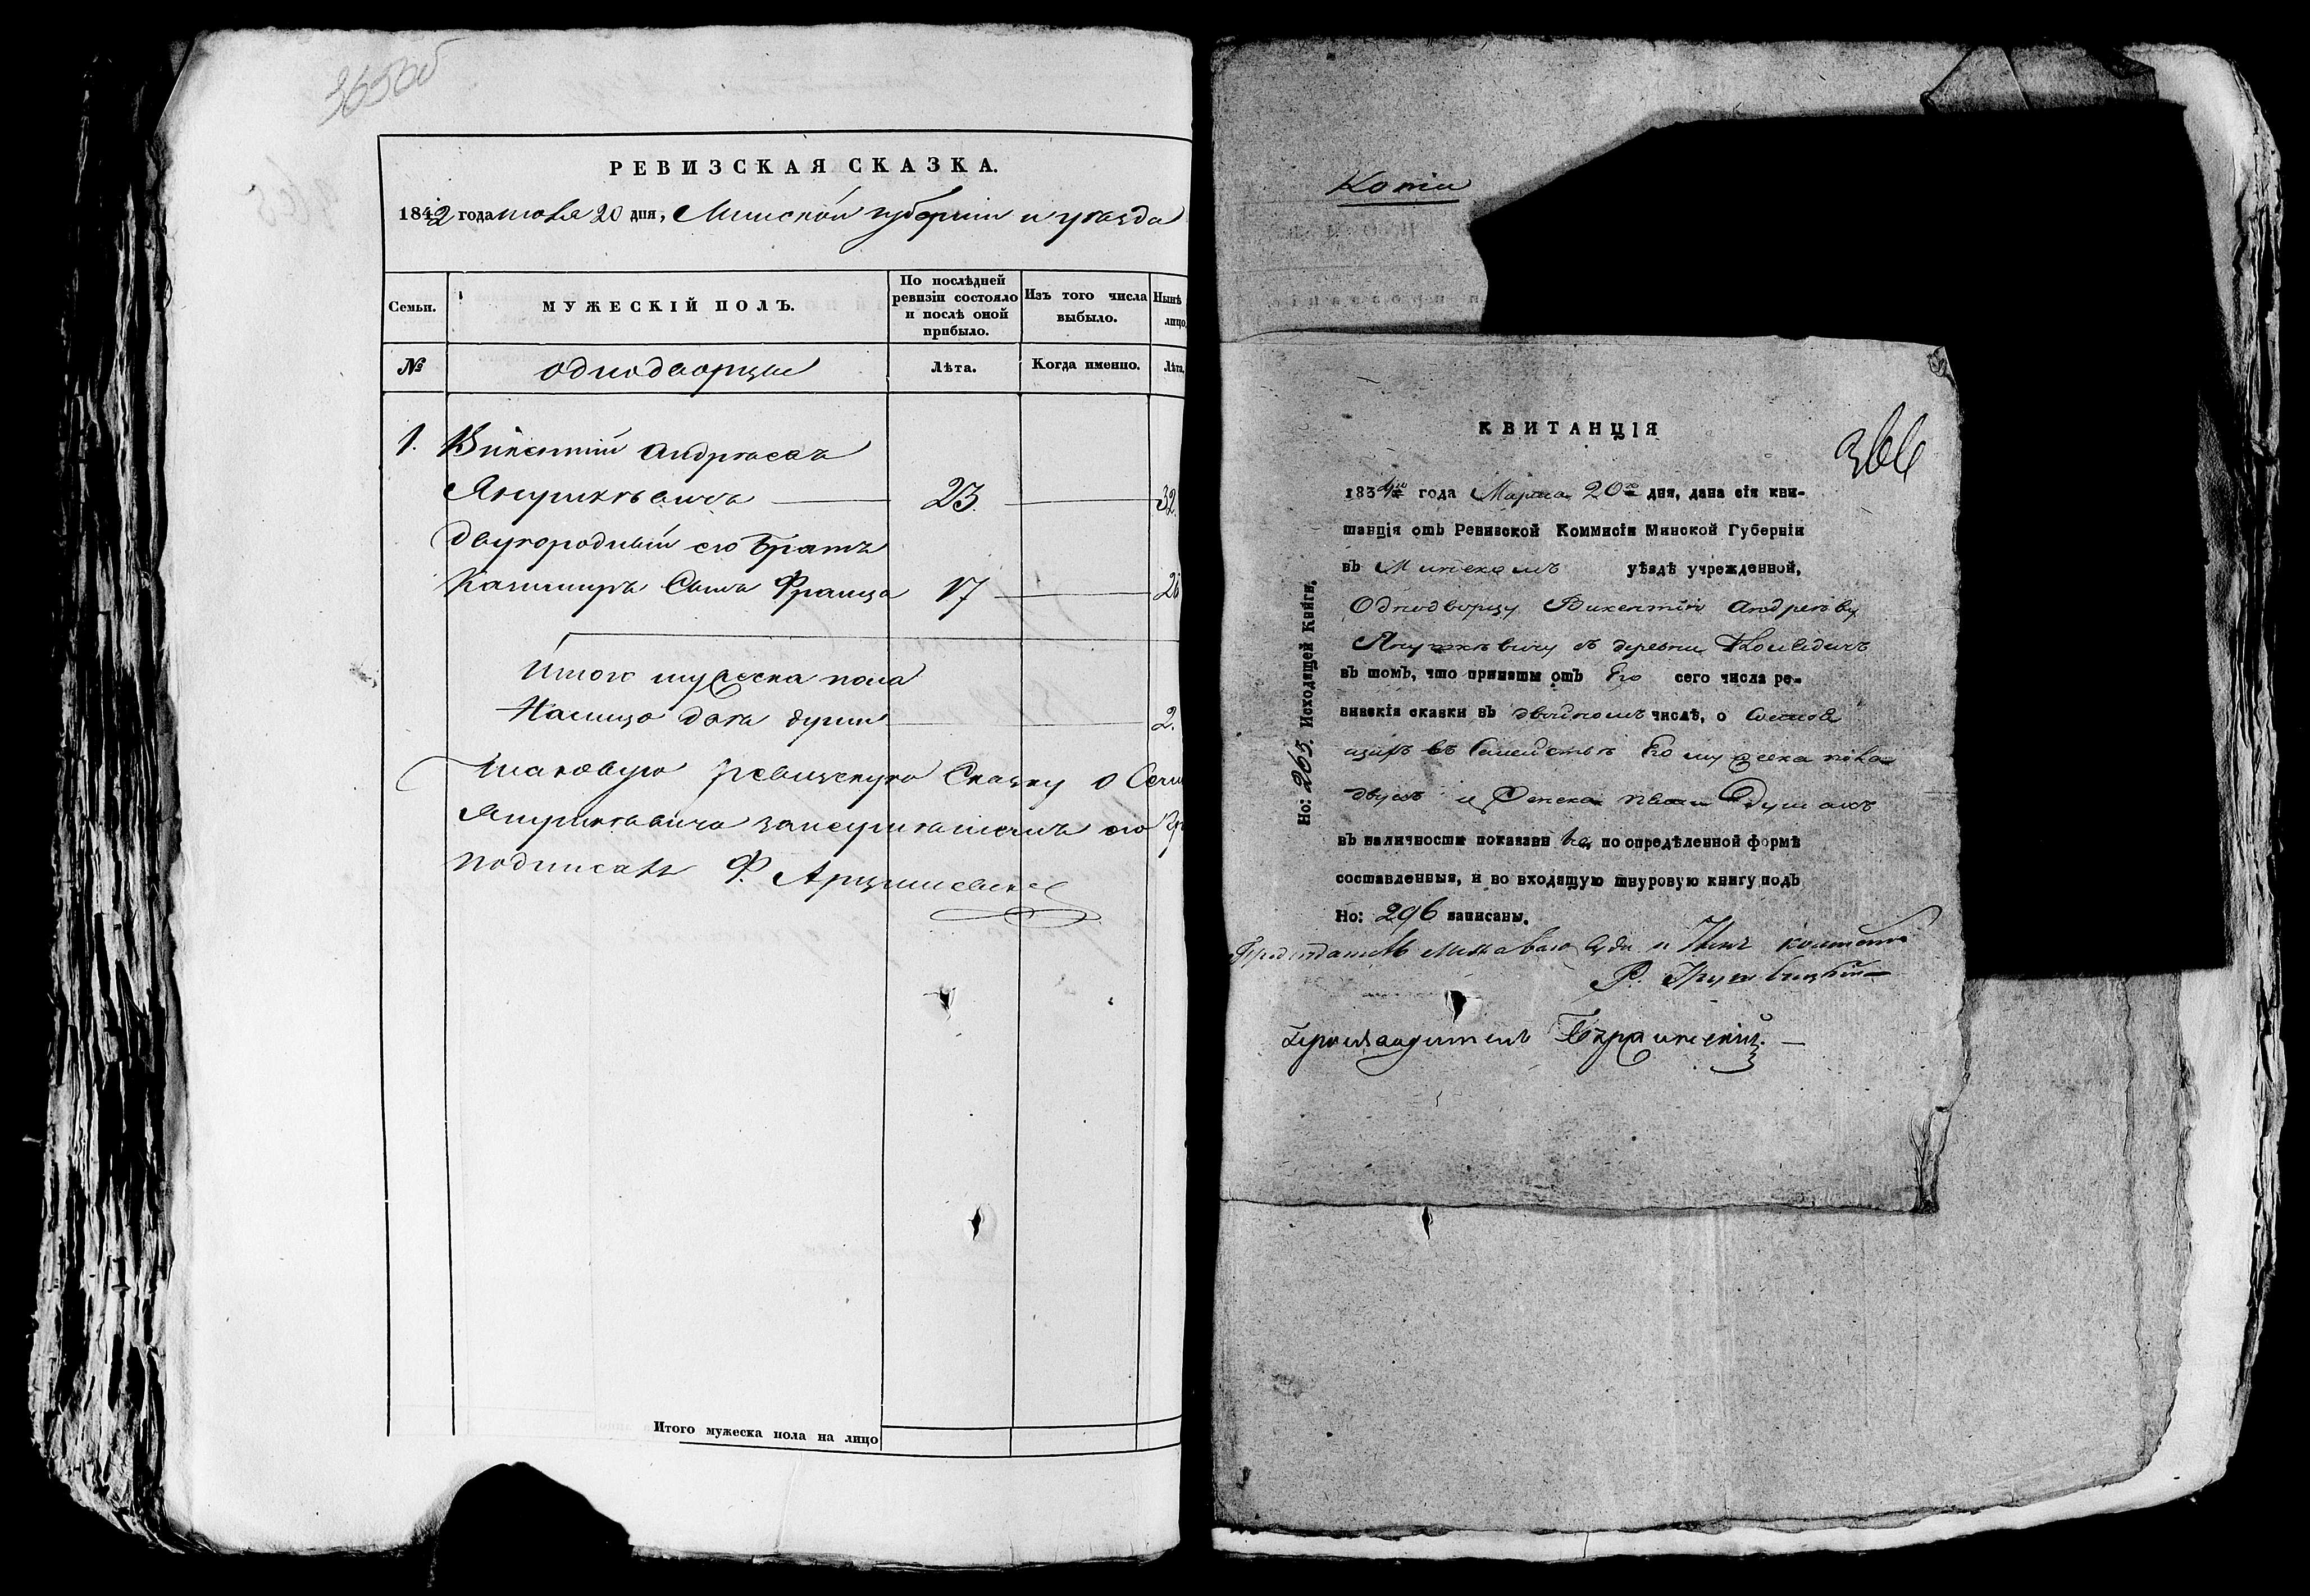 365об
РЕВИЗСКАЯ СКАЗКА.
1842 года июля 20 дня, Минской губернии и уезда
Семьи.
МУЖЕСКІЙ ПОЛЪ.
По послѣдней ревизіи состояло и послѣ оной прибыло.
Изъ того числа выбыло.
Нынѣ
лицо
№
однодворцы
Лѣта.
Когда именно.
Лѣта,
1. Викентій Андреевъ
Янушкѣвичъ 23. 32.
двуюродный его братъ
Казимиръ Сынъ Франца 17 26
Итого мужеска пола
Налицо два души 2.
таковую ревизскую Сказку о
Янушкѣвича его
подписалъ Ф.
Итого мужеска пола на лицо
Копія
КВИТАНЦІЯ
366
1834го года Марта 20го дня, дана сія кви-
танція отъ Ревизской Коммисіи Минской Губерніи
въ Минскомъ уѣздѣ учрежденной,
Однодворцу Викентію Андрееву
Янушкѣвичу въ деревни
въ томъ, что приняты отъ Его сего числа ре-
визскія сказки въ двойномъ числѣ, о Состоя
щихъ въ Семействѣ Его мужеска пола
двухъ и женска пола душахъ
въ наличности показанныя, по опредѣленной формѣ
составленныя, и во входящую шнуровую книгу подъ
Но: 296 записаны.
Но: 265. Исходящей Книги.
Предсѣдатель
Р.
Производитель